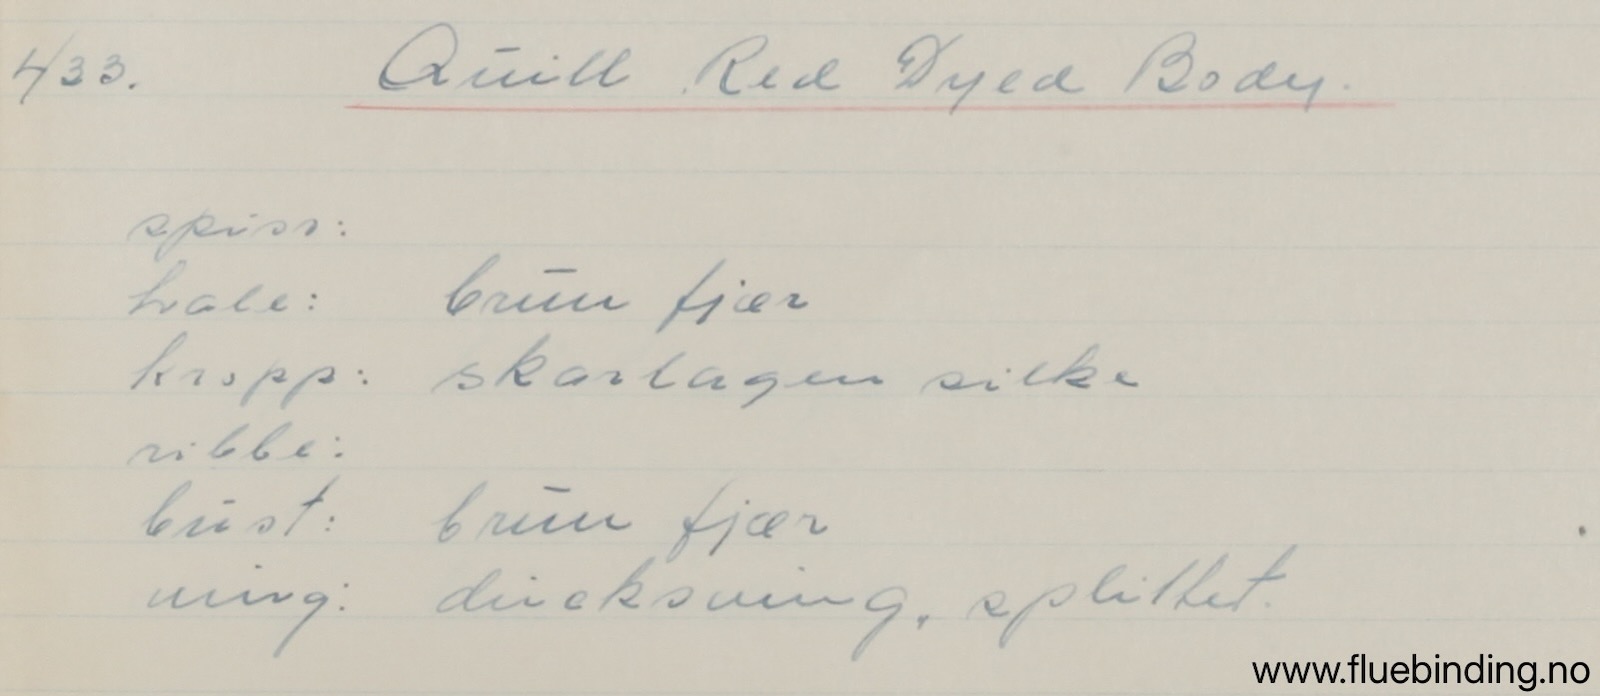 433. Quill Red Dyed Body.
spiss:
hale: brun fjær
kropp: skarlagen silke
ribbe:
bust: brun fjær
wing: duckswing, splittet.
www.fluebinding.no